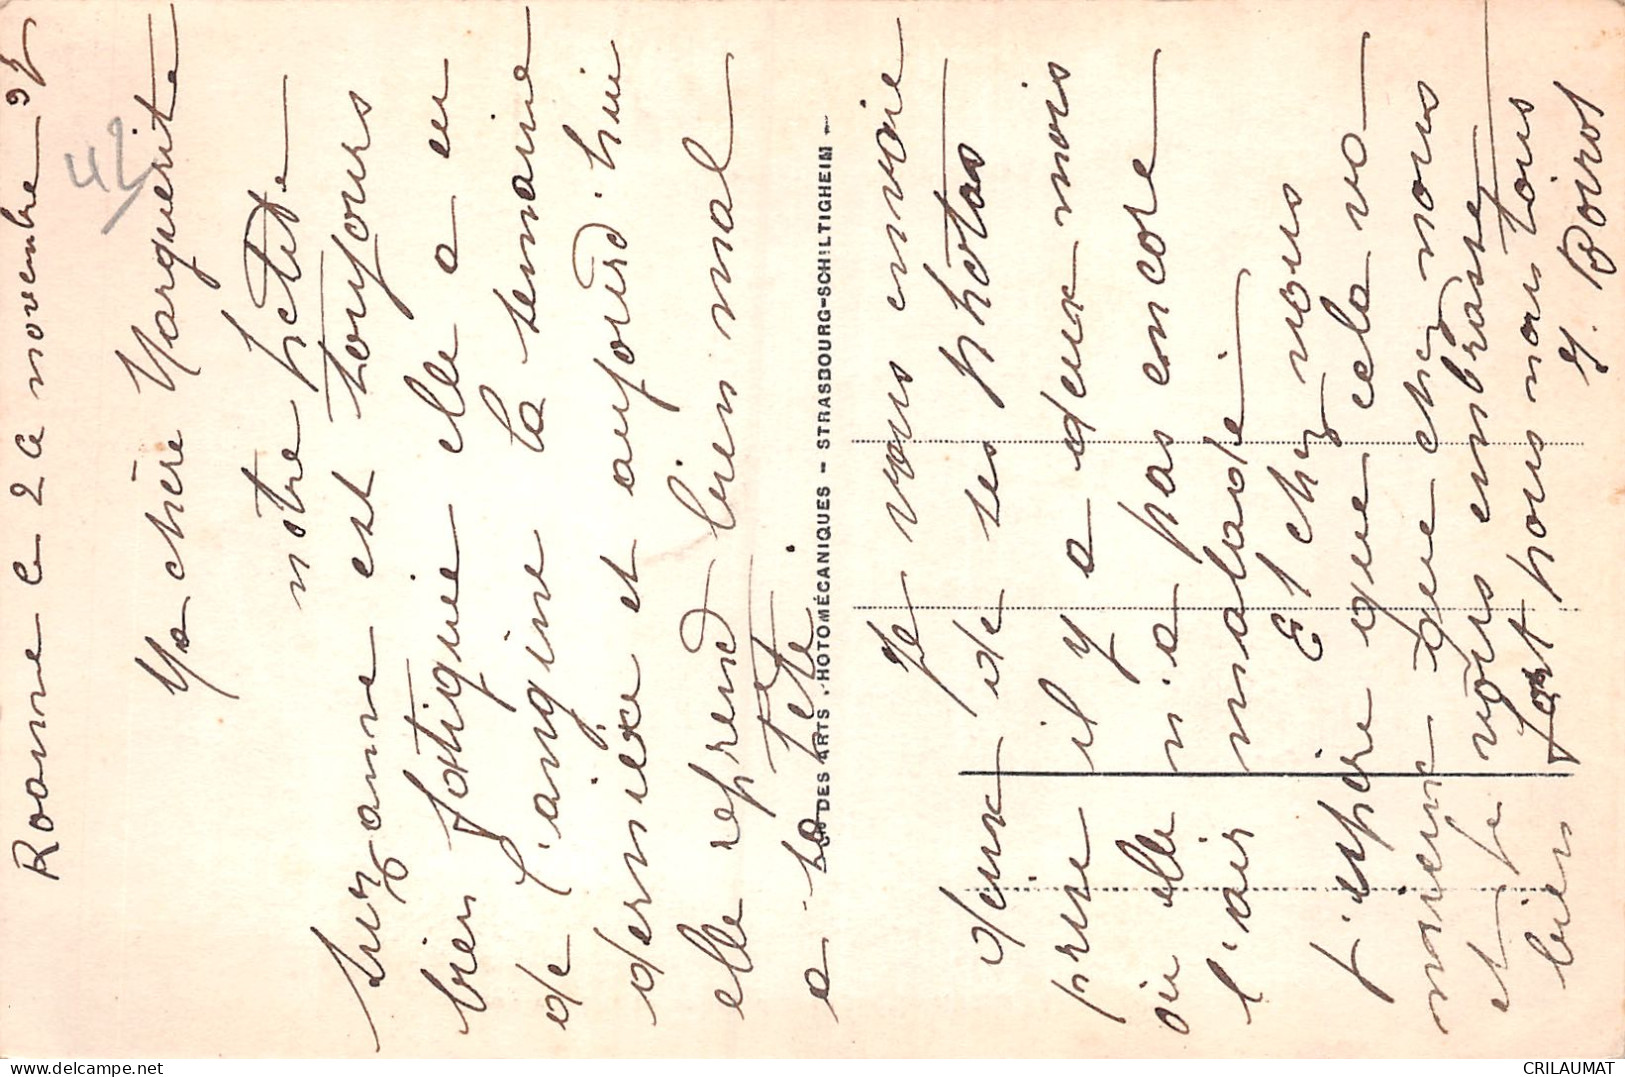 Roanne le 2 novembre 35
42
Ma chère Marguerite
notre petite
Suzanne est toujours
bien fatiguée elle a eu
de l'angine la semaine
dernière et aujourd'hui
elle reprend bien mal
a la tête.
DES ARTS PHOTOMÉCANIQUES - STRASBOURG-SCHILTIGHEIM -
Je vous envoie
deux de ses photos
prise il y a deux mois
ou elle n'a pas encore
l'air malade
Et chez vous
j'espère que cela va
mieux que chez nous
et je vous embrasse
bien fort pour nous tous
Y. Boirot
CRILAUMAT